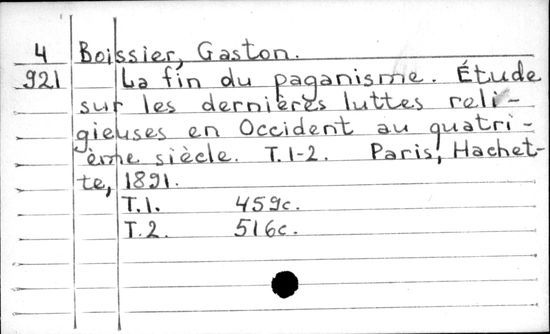 4 Boissier, Gaston.
921 La fin du paganisme. Étude
sur les dernières luttes reli-
gieuses en Occident au quatri-
ème siècle. T. 1-2. Paris, Hachet-
te, 1891.
T. 1. 459c.
T. 2. 516c.